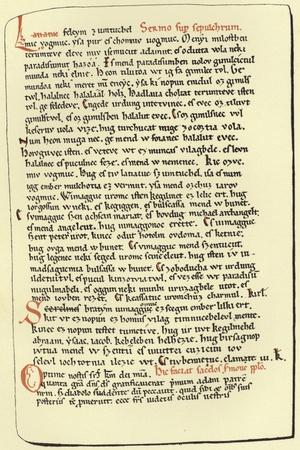 Latiatuc feleym zumtuchel Sermo sup sepulchrum.
mic vogmuc. ysa pur es chomuv uogmuc. Menyi milostben
terumteve eleve miv isemucut adamut. es odutta vola neki
paradisumut hazóá. Es mend paradisumben uolov gimilcictul
munda neki elnie. Heon tilutoa wt ig fa gimilce tvl. Ge
mundoa neki meret nu eneyc. ysa ki nopun emdul oz gimils
twl. halalnec halaláál holz. Hadlaua choltat terumteve isten
tvl. ge feledeve. Engede urdung intetvinec. es evec oz tiluvt
gimilstwl. es oz gimilsben halalut evec. Es oz gimilsnec vvl
keseruv uola vize. hug turchucat mige zocoztia vola.
Num heon muga nec. ge mend w foianec halalut evec.
Horoguvec isten. es veteve wt ez muncas vilagbele. es levn
halalnec es puculnec feze. es mend w nemenec. Kic ozvc.
miv vogmuc. Hug es tiv latiatuv szumtuchel. isa es num
igg ember mulchotia ez vermut. ysa mend ozchuz iarov
vogmuc. Wimagguc uromv isten kegilmet ez lelic ert. hug
iorgossun w neki. es kegiggen. es bulsassa mend w bunet.
Es vimagguc szen achscin mariat. es bovdug michael archangelt.
es mend angelcut. hug uimaggonoc erette. Es uimagguc
szent peter urot. kinec odut hotolm ovdonia. es ketnie.
hug ovga mend w bunet. Es vimagguc mend szentucut.
hug legenec neki seged uromc scine eleut. hug isten iv ui
madsagucmia bulsassa w bunet. Es zobaducha wt urdung
ildetuitvl. es pucul kinzotviatwl. es vezesse wt paradisu
nugulmabeli. es oggun neki munhi uruzagbele utot. es
mend iovben rezet. Es keassatuc uromchuz charmul. Kirl.
Scerelmes bratym uimagguc ez scegin ember lilki ert.
kit vr ez nopun ez homus vilag timnucebelevl mente.
kinec ez nopun testet tumetivc. hug ur uvt kegilmehel
abraam. ysaac. iacob. kebeleben helhezie. hug birsagnop
ivtua mend w szentii es unuttei cuzicun iov
felevl iochtotnia ilezie wt. Es tivbennetuc. clamate iii. K.